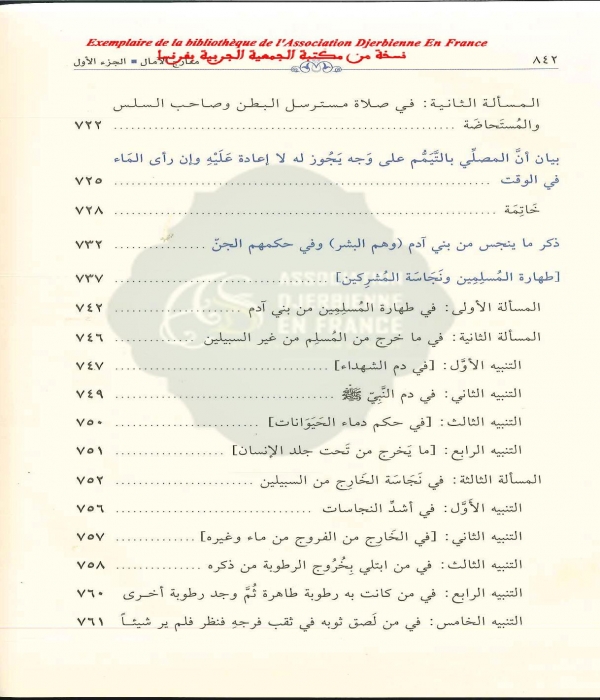 Exemplaire de la bibliothèque de l'Association Djerbienne En France
نسخة من مكتبة الجمعية الجربية بفرنسا
٨٤٢ الآمال ▪ الجزء الأول
المسألة الثانية: في صلاة مسترسل البطن وصاحب السلس
والمُستَحاضَة ٧٢٢
بيان أنَّ المصلِّي بالتَّيَمُّم على وَجه يَجُوز له لا إعادة عَلَيْهِ وإن رأى المَاء
في الوقت ٧٢٥
خَاتِمَة ٧٢٨
ذكر ما ينجس من بني آدم (وهم البشر) وفي حكمهم الجنّ ٧٣٢
[طهارة المُسلِمِين ونَجَاسَة المُشرِكِين] ٧٣٧
المسألة الأولى: في طهارة المُسلِمِين من بني آدم ٧٤٢
المسألة الثانية: في ما خرج من المُسلِم من غير السبيلين ٧٤٦
التنبيه الأوَّل: [في دم الشهداء] ٧٤٧
التنبيه الثاني: في دم النَّبِيّ ﷺ ٧٤٩
التنبيه الثالث: [في حكم دماء الحَيَوَانات] ٧٥٠
التنبيه الرابع: [ما يَخرج من تَحت جلد الإنسان] ٧٥١
المسألة الثالثة: في نَجَاسَة الخَارِج من السبيلين ٧٥٢
التنبيه الأوَّل: في أشدِّ النجاسات ٧٥٦
التنبيه الثاني: [في الخَارِج من الفروج من ماء وغيره] ٧٥٧
التنبيه الثالث: في من ابتلي بِخُرُوج الرطوبة من ذكره ٧٥٨
التنبيه الرابع: في من كانت به رطوبة طاهرة ثُمَّ وجد رطوبة أخرى ٧٦٠
التنبيه الخامس: في من لَصق ثوبه في ثقب فرجهِ فنظر فلم ير شيئاً ٧٦١
ASSOCIATION
DJERBIENNE
EN FRANCE